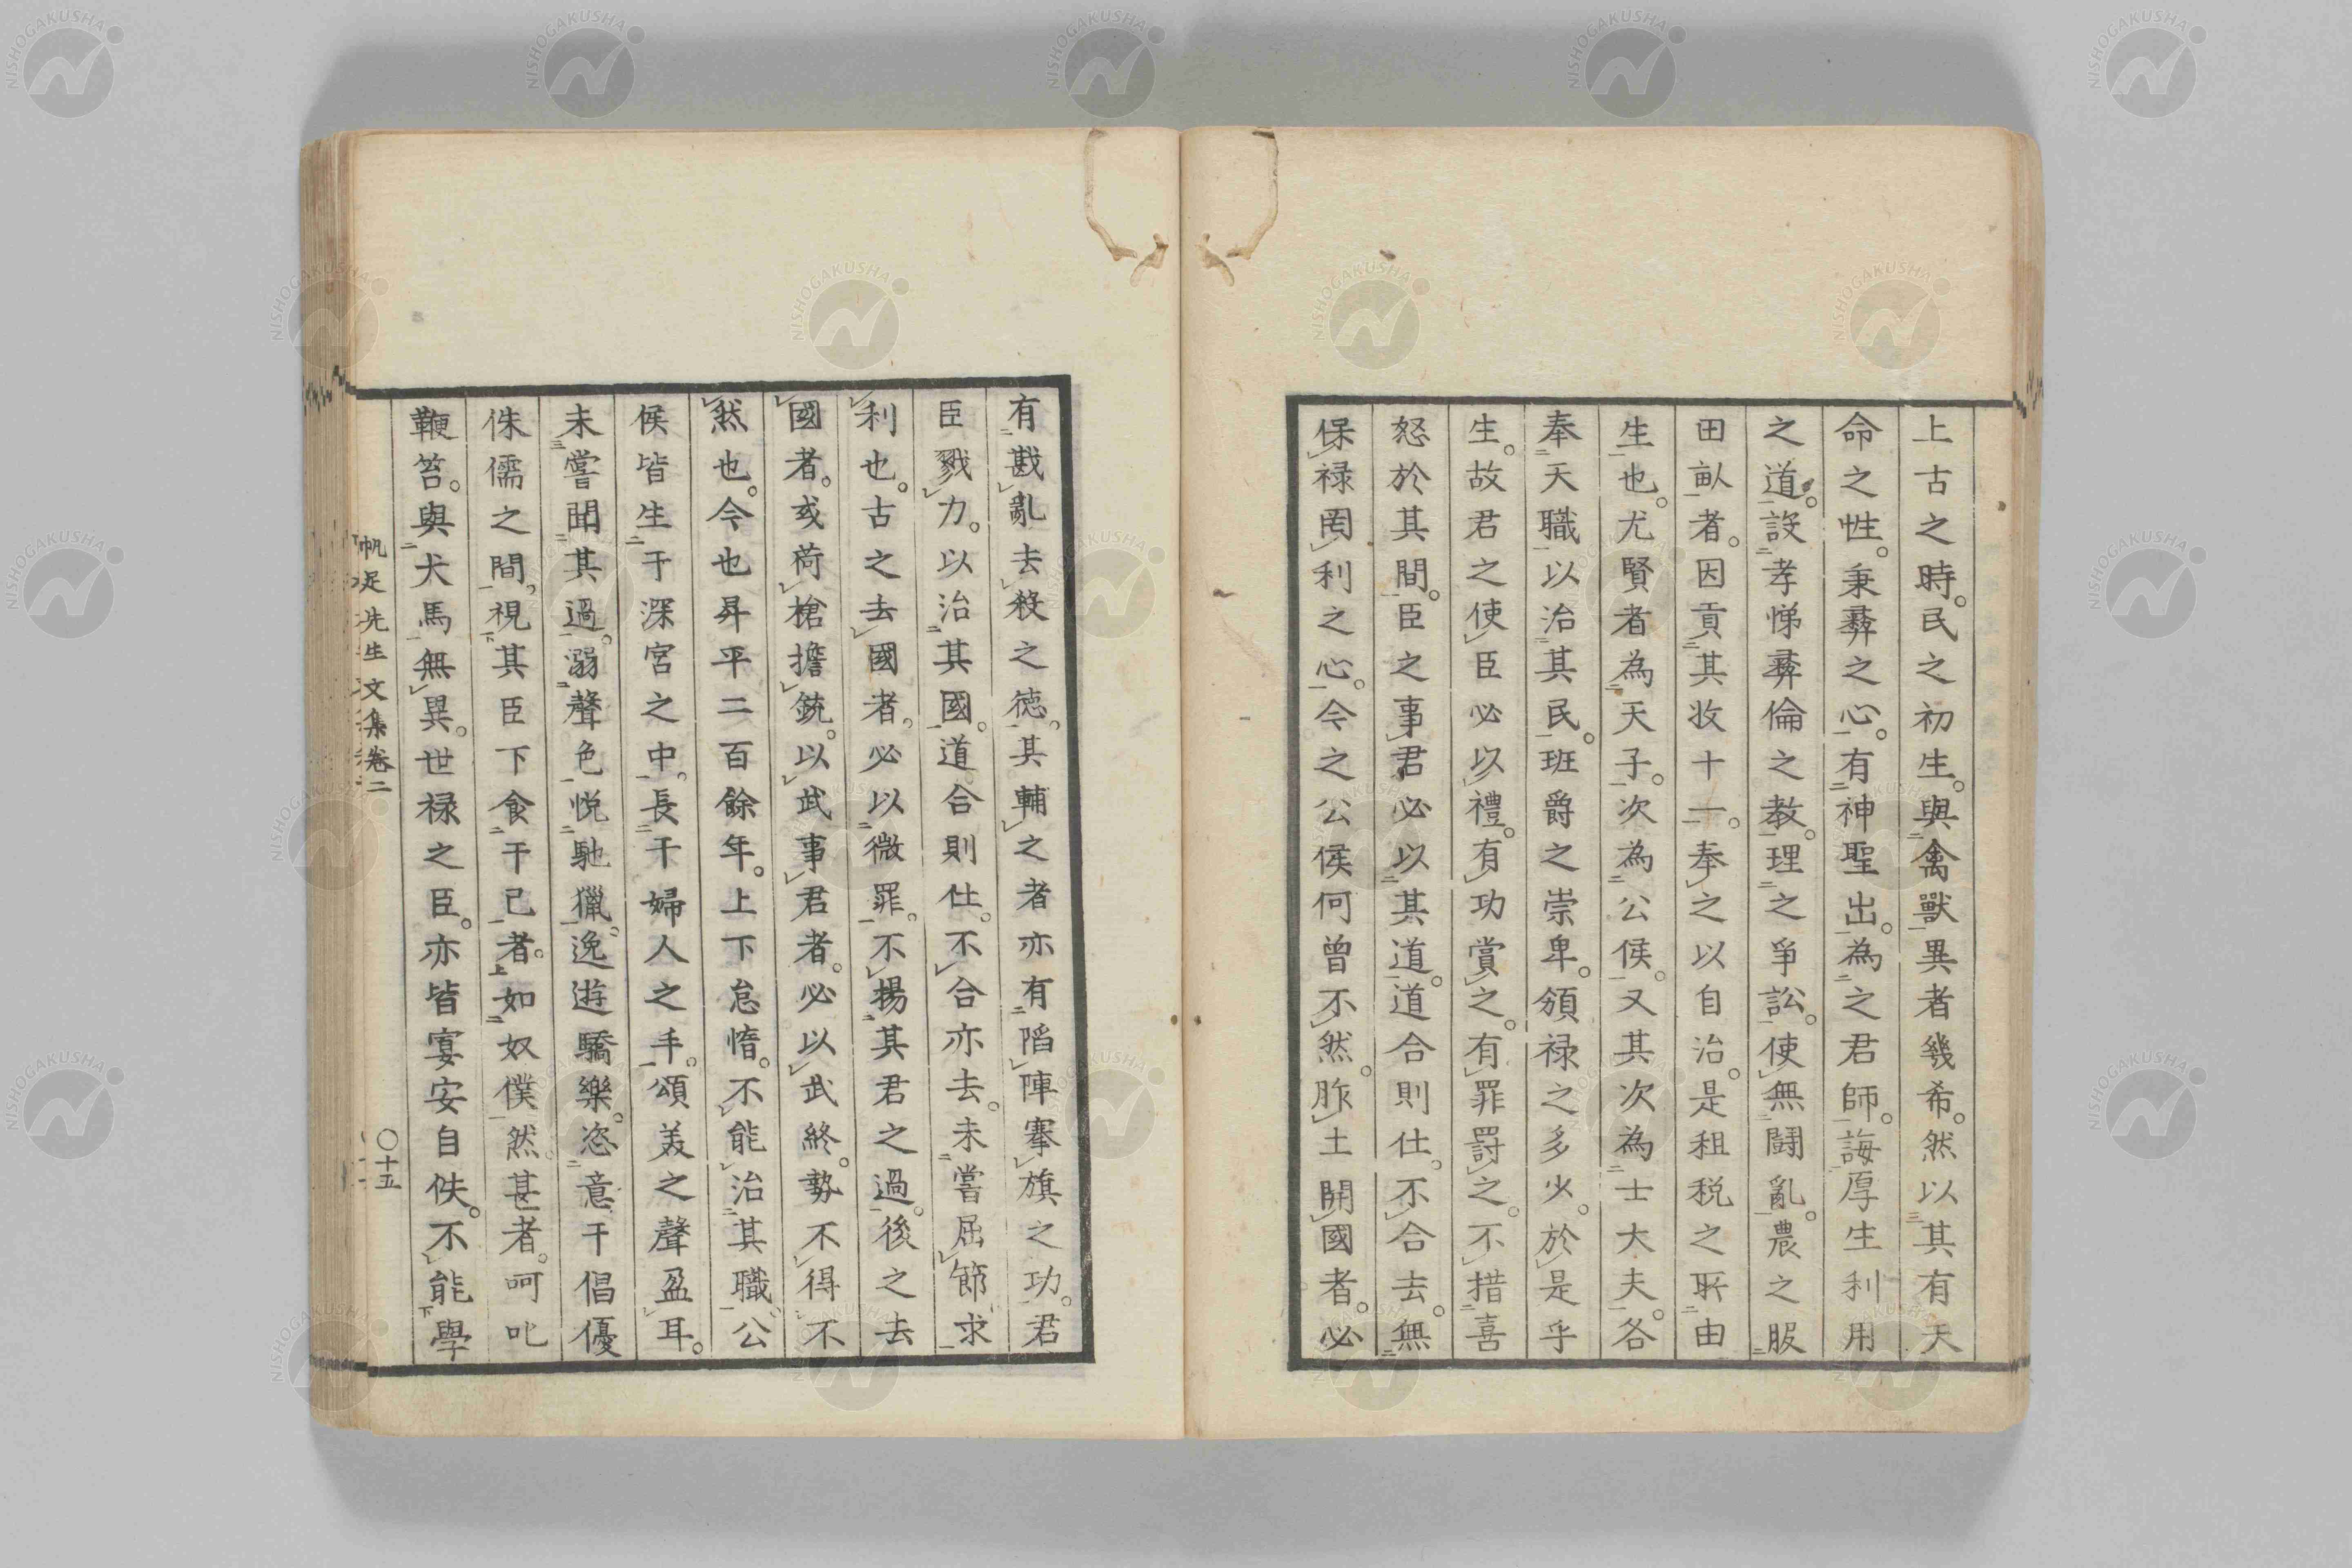 上古之時。民之初生。與禽獸異者幾希。然以其有天
命之性。秉彛之心。有神聖出。為之君師。誨厚生利用
之道。設孝悌彛倫之教。理之爭訟。使無闘亂。農之服
田畝者。因貢其收十一。奉之以自治。是租税之所由
生也。尤賢者為天子。次為公侯。又其次為士大夫。各
奉天職以治其民。班爵之崇卑。頒禄之多少。於是乎
生。故君之使臣必以禮。有功賞之。有罪罰之。不措喜
怒於其間。臣之事君必以其道。道合則仕。不合去。無
保禄罔利之心。今之公侯何曾不然。胙土開國者。必
有戡亂去殺之徳。其輔之者亦有蹈陣搴旗之功。君
臣戮力。以治其國。道合則仕。不合亦去。未嘗屈節求
利也。古之去國者。必以微罪。不揚其君之過。後之去
國者。或荷槍擔銃。以武事君者。必以武終。勢不得不
然也。今也昇平二百餘年。上下怠惰。不能治其職。公
侯皆生于深宮之中。長于婦人之手。頌美之聲盈耳。
未嘗聞其過。溺聲色悦馳獵。逸遊驕樂。恣意于倡優
侏儒之間。視其臣下食于己者。如奴僕然。甚者。呵叱
鞭笞。與犬馬無異。世禄之臣。亦皆宴安自佚。不能學
帆足先生文集巻二
〇十五
NISHOGAKUSHA